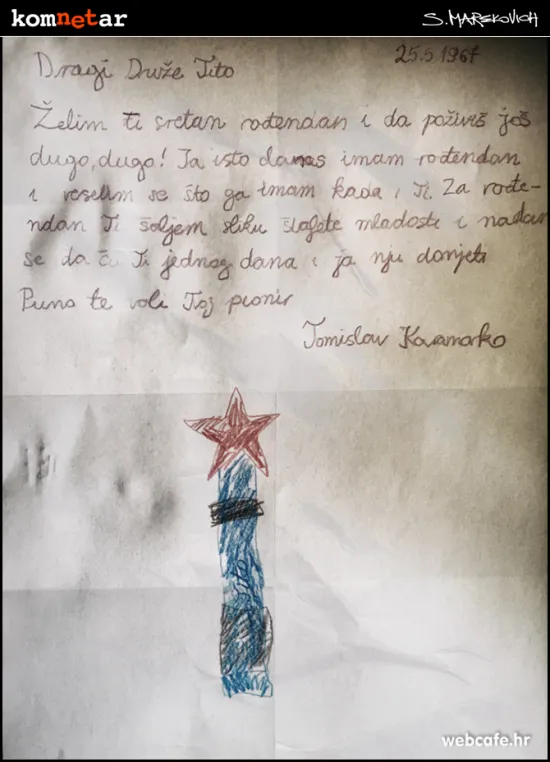 komnetar
S. MAREKOVICH
25.5.1967
Dragi Druže Tito
Želim ti sretan rođendan i da poživiš još
dugo, dugo! Ja isto danas imam rođendan
i veselim se što ga imam kada i Ti. Za rođe-
ndan Ti šaljem sliku štafete mladosti i nadam
se da ću Ti jednog dana i ja nju donjeti
Puno te voli Tvoj pionir
Tomislav Karamarko
webcafe.hr